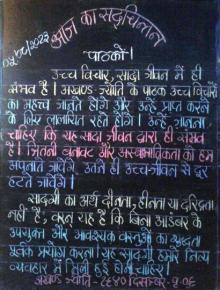 आज का सद्चिन्तन
पाठकों!
उच्च विचार, सादा जीवन में ही
संभव है। अखण्ड-ज्योति के पाठक उच्च विचारों
का महत्व जानते होंगे और उन्हें प्राप्त करने
के लिए लालायित रहते होंगे। उन्हें जानना
चाहिए कि यह सादा जीवन द्वारा ही संभव
है। जितनी बनावट और अस्वाभाविकता को हम
अपनाते जावेंगे, उतने ही उच्चजीवन से दूर
हटते जावेंगे।
सादगी का अर्थ दीनता, हीनता या दरिद्रता
नहीं है, वरन यह है कि बिना आडंबर के
उपयुक्त और आवश्यक वस्तुओं का शुद्धता
पूर्वक प्रयोग करना। यह सादगी हमारे नित्य
व्यवहार में मिली हुई होनी चाहिए।
अखण्ड ज्योति - १९४० दिसम्बर -